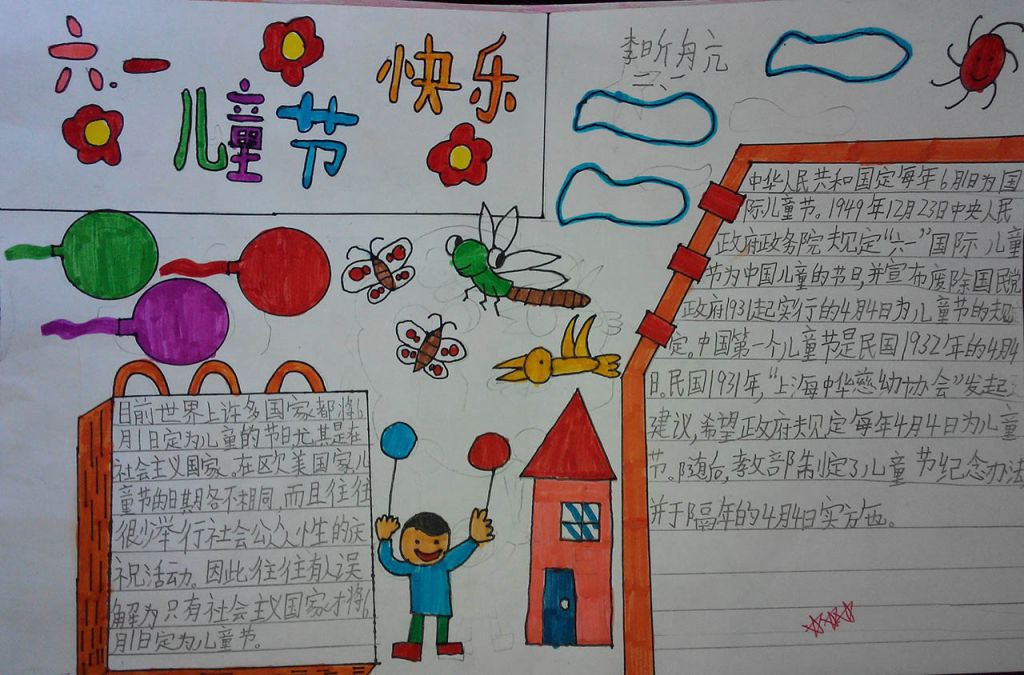 六一
儿童节
快乐
李昕舟亢
三、一
中华人民共和国定每年6月1日为国
际儿童节。1949年12月23日中央人民
政府政务院规定“六一”国际儿童
节为中国儿童的节日,并宣布废除国民党
政府1931起实行的4月4日为儿童节的规
定。中国第一个儿童节是民国1932年的4月4
日。民国1931年,“上海中华慈幼协会”发起
建议,希望政府规定每年4月4日为儿童
节。随后,教文部制定了儿童节纪念办法,
并于隔年的4月4日实施。
目前世界上许多国家都将6
月1日定为儿童的节日尤其是在
社会主义国家。在欧美国家儿
童节的日期各不相同,而且往往
很少举行社会公众性的庆
祝活动。因此往往有人误
解为只有社会主义国家才将6
月1日定为儿童节。